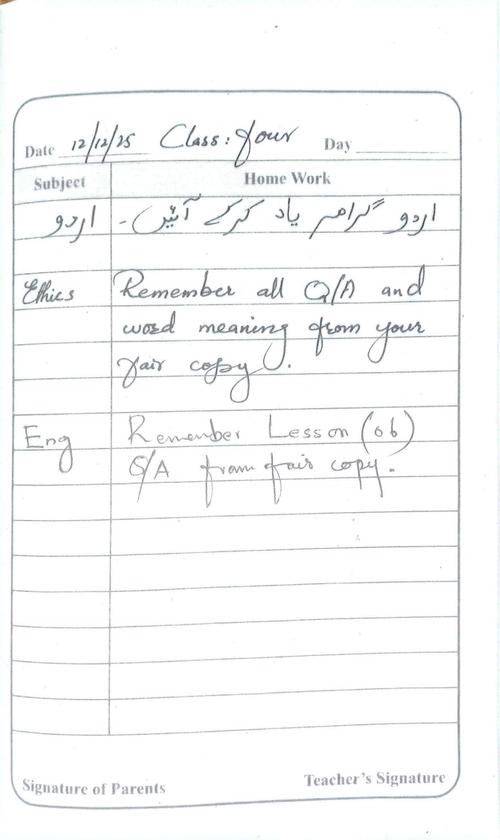 Date 12/12/25 Class: four Day
Subject Home Work
اردو اردو گرامر یاد کرکے آئیں۔
Ethics Remember all Q/A and
word meaning from your
fair copy.
Eng Remember Lesson (06)
Q/A from fair copy.
Signature of Parents Teacher's Signature